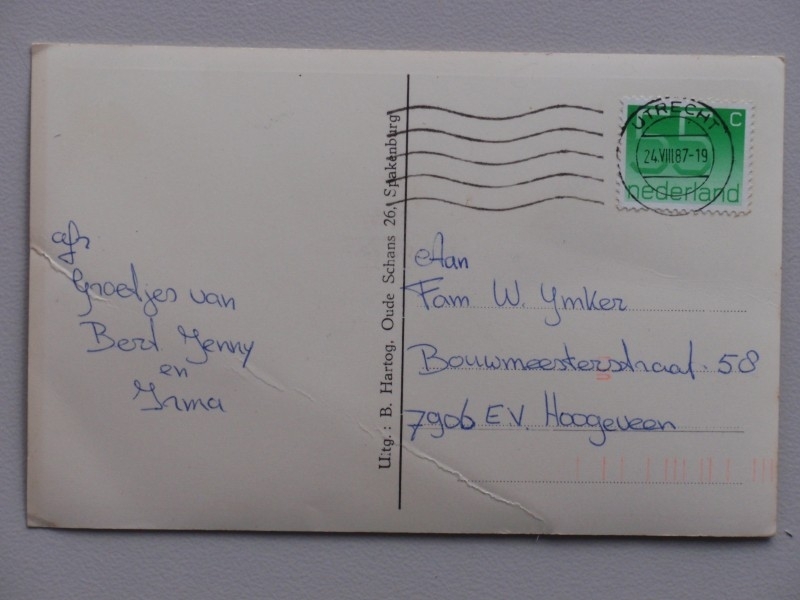 afz
Groetjes van
Bert Jenny
en
Irma
Uitg.: B. Hartog, Oude Schans 26, Spakenburg
UTRECHT
24.VIII.87-19
55 C
nederland
Aan
Fam W. Ymker
Bouwmeesterstraat 58
7906 EV. Hoogeveen